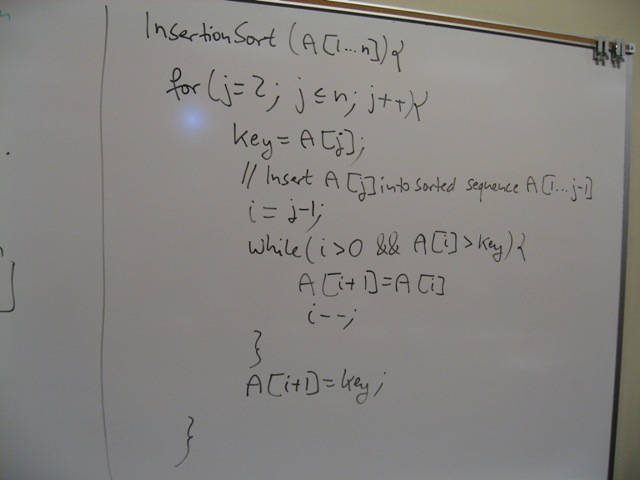 InsertionSort (A[1...n]){
for(j=2; j≤n; j++){
key=A[j];
// Insert A[j] into sorted sequence A[1...j-1]
i=j-1;
while(i>0 && A[i]>key){
A[i+1]=A[i]
i--;
}
A[i+1]=key;
}